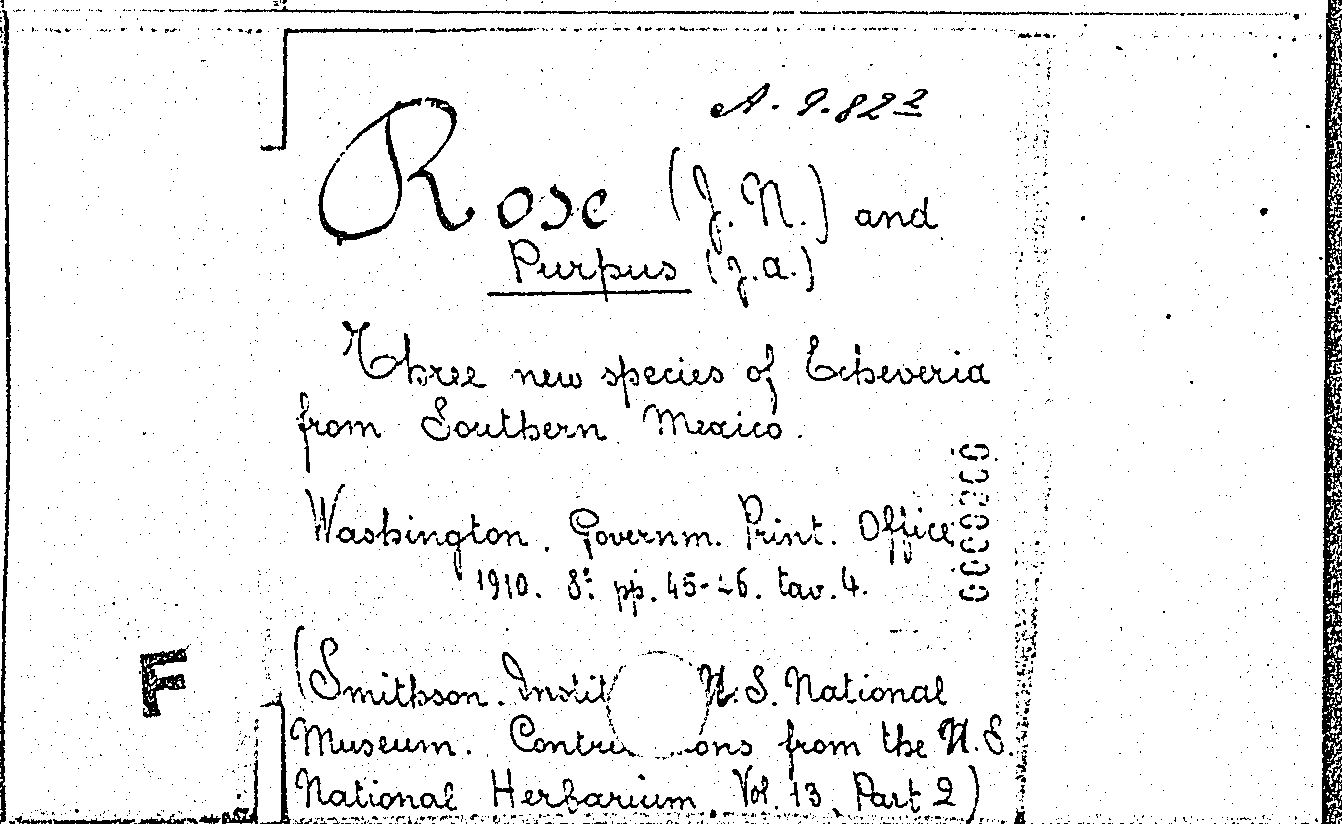 A. 9. 82²
Rose (J. N.) and
Purpus (J. A.)
Three new species of Echeveria
from Southern Mexico.
Washington. Governm. Print. Office
1910. 8°: pp. 45-46. tav. 4.
(Smithson. Instit U. S. National
Museum. Contri ons from the U. S.
National Herbarium. Vol. 13, Part 2)
F